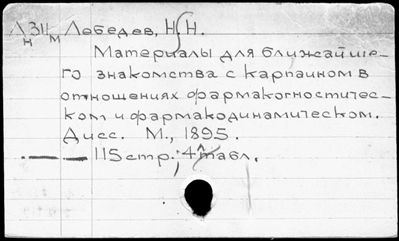 Л311 Лебедев, Н.Н.
Н М
Материалы для ближайше-
го знакомства с карпаином в
отношениях фармакогностичес-
ком и фармакодинамическом.
Дисс. М., 1895.
115 стр.; 4 табл.